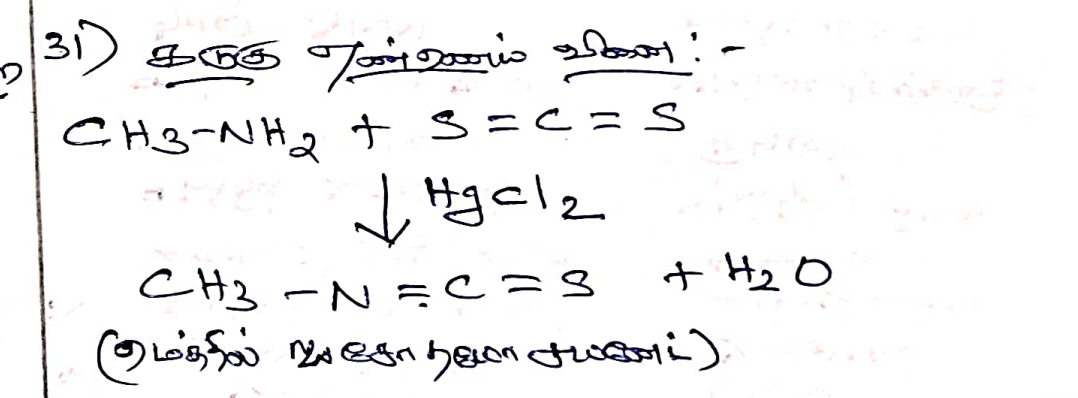 31) கடுகு எண்ணெய் வினை :-
CH3-NH2 + S=C=S
↓ HgCl2
CH3-N=C=S + H2O
(மெத்தில் ஐசோ தயோ சயனேட்)